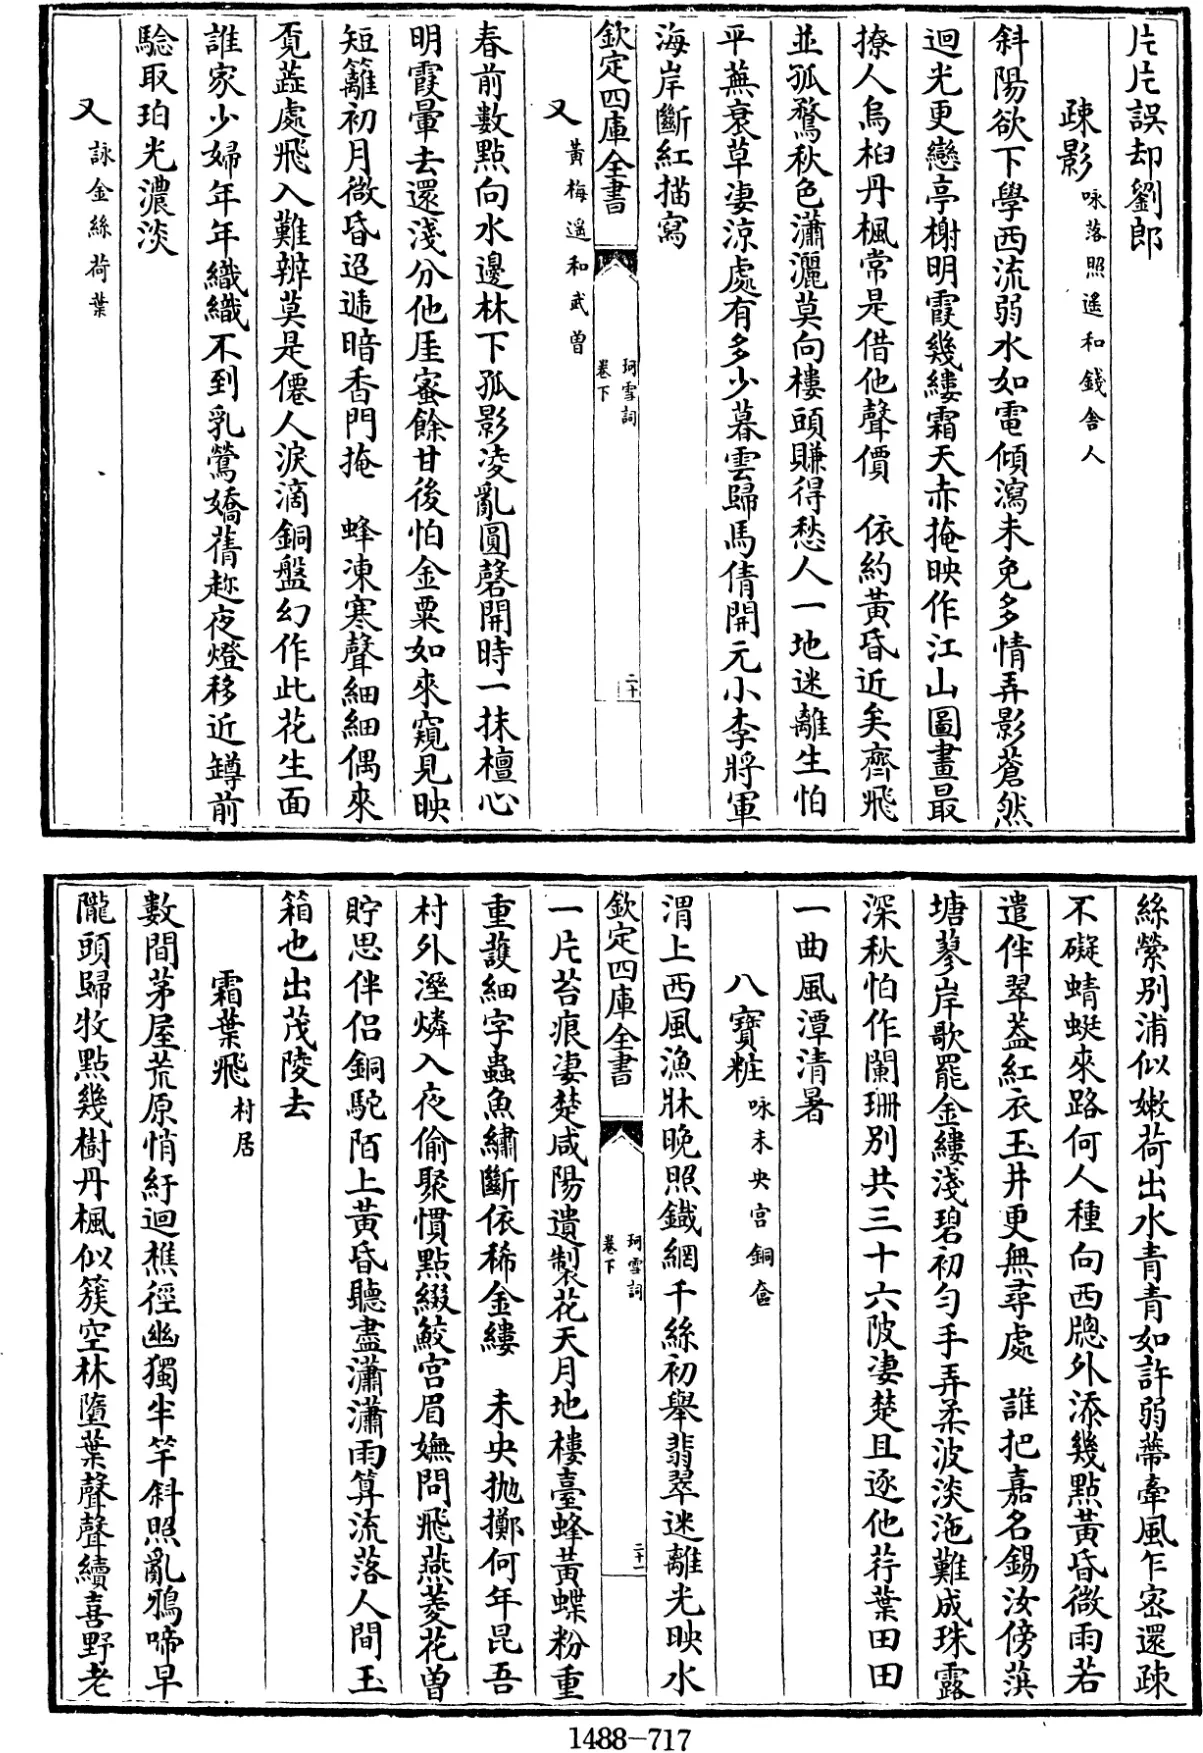 片片誤却劉郎
疎影咏落照遙和錢舍人
斜陽欲下學西流弱水如電傾瀉未免多情弄影蒼然
迴光更戀亭榭明霞幾縷霜天赤掩映作江山圖畫最
撩人烏桕丹楓常是借他聲價　依約黃昏近矣齊飛
並孤鶩秋色瀟灑莫向樓頭賺得愁人一地迷離生怕
平蕪衰草淒涼處有多少暮雲歸馬倩開元小李將軍
海岸斷紅描寫
欽定四庫全書
珂雪詞
卷下
二十
又黃梅遙和武曾
春前數點向水邊林下孤影凌亂圓磬開時一抹檀心
明霞暈去還淺分他厓蜜餘甘後怕金粟如來窺見映
短籬初月微昏迢遞暗香門掩　蜂凍寒聲細細偶來
覓蕋處飛入難辨莫是僊人淚滴銅盤幻作此花生面
誰家少婦年年織織不到乳鶯嬌蒨趂夜燈移近罇前
騐取珀光濃淡
又詠金絲荷葉
絲縈别浦似嫩荷出水青青如許弱蔕牽風乍宻還疎
不礙蜻蜓來路何人種向西牕外添幾點黃昏微雨若
遣伴翠葢紅衣玉井更無尋處　誰把嘉名錫汝傍蕻
塘蓼岸歌罷金縷淺碧初勻手弄柔波淡沲難成珠露
深秋怕作闌珊别共三十六陂淒楚且逐他荇葉田田
一曲風潭清暑
八寶粧咏未央宫銅奩
渭上西風漁牀晚照鐡網千絲初舉翡翠迷離光映水
欽定四庫全書
珂雪詞
卷下
二十一
一片苔痕淒楚咸陽遺製花天月地樓臺蜂黃蝶粉重
重護細字蟲魚繡斷依稀金縷　未央抛擲何年昆吾
村外溼燐入夜偷聚慣點綴鮫宫眉嫵問飛燕菱花曾
貯思伴侣銅駝陌上黃昏聽盡瀟瀟雨算流落人間玉
箱也出茂陵去
霜葉飛村居
數間茅屋荒原悄紆迴樵徑幽獨半竿斜照亂鴉啼早
隴頭歸牧點幾樹丹楓似簇空林墮葉聲聲續喜野老
1488-717